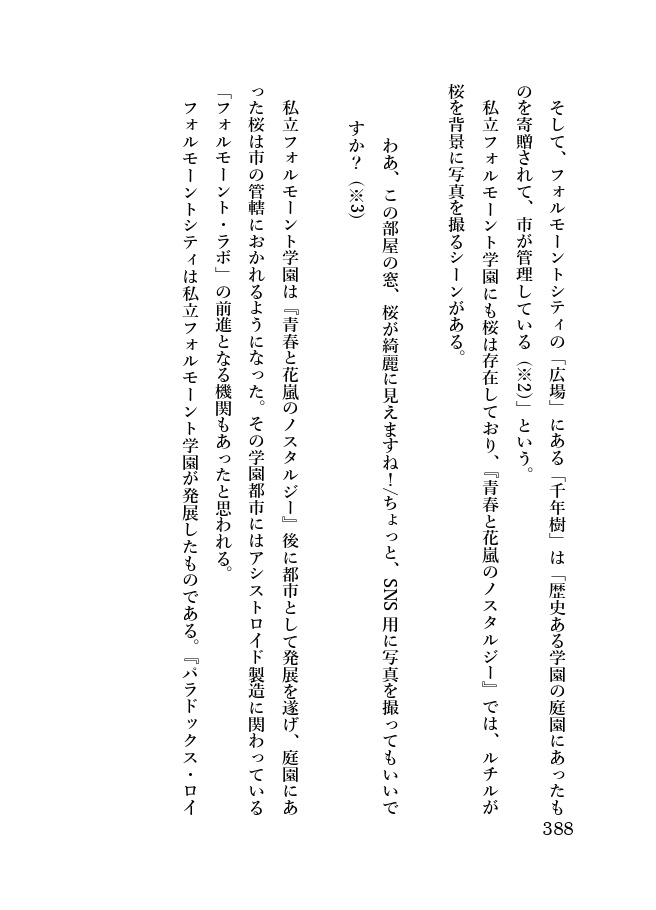 そして、フォルモーントシティの「広場」にある「千年樹」は「歴史ある学園の庭園にあったも
のを寄贈されて、市が管理している（※2）」という。
　私立フォルモーント学園にも桜は存在しており、『青春と花嵐のノスタルジー』では、ルチルが
桜を背景に写真を撮るシーンがある。
　わあ、この部屋の窓、桜が綺麗に見えますね！/ちょっと、SNS用に写真を撮ってもいいで
すか？（※3）
　私立フォルモーント学園は『青春と花嵐のノスタルジー』後に都市として発展を遂げ、庭園にあ
った桜は市の管轄におかれるようになった。その学園都市にはアシストロイド製造に関わっている
「フォルモーント・ラボ」の前進となる機関もあったと思われる。
　フォルモーントシティは私立フォルモーント学園が発展したものである。『パラドックス・ロイ
388